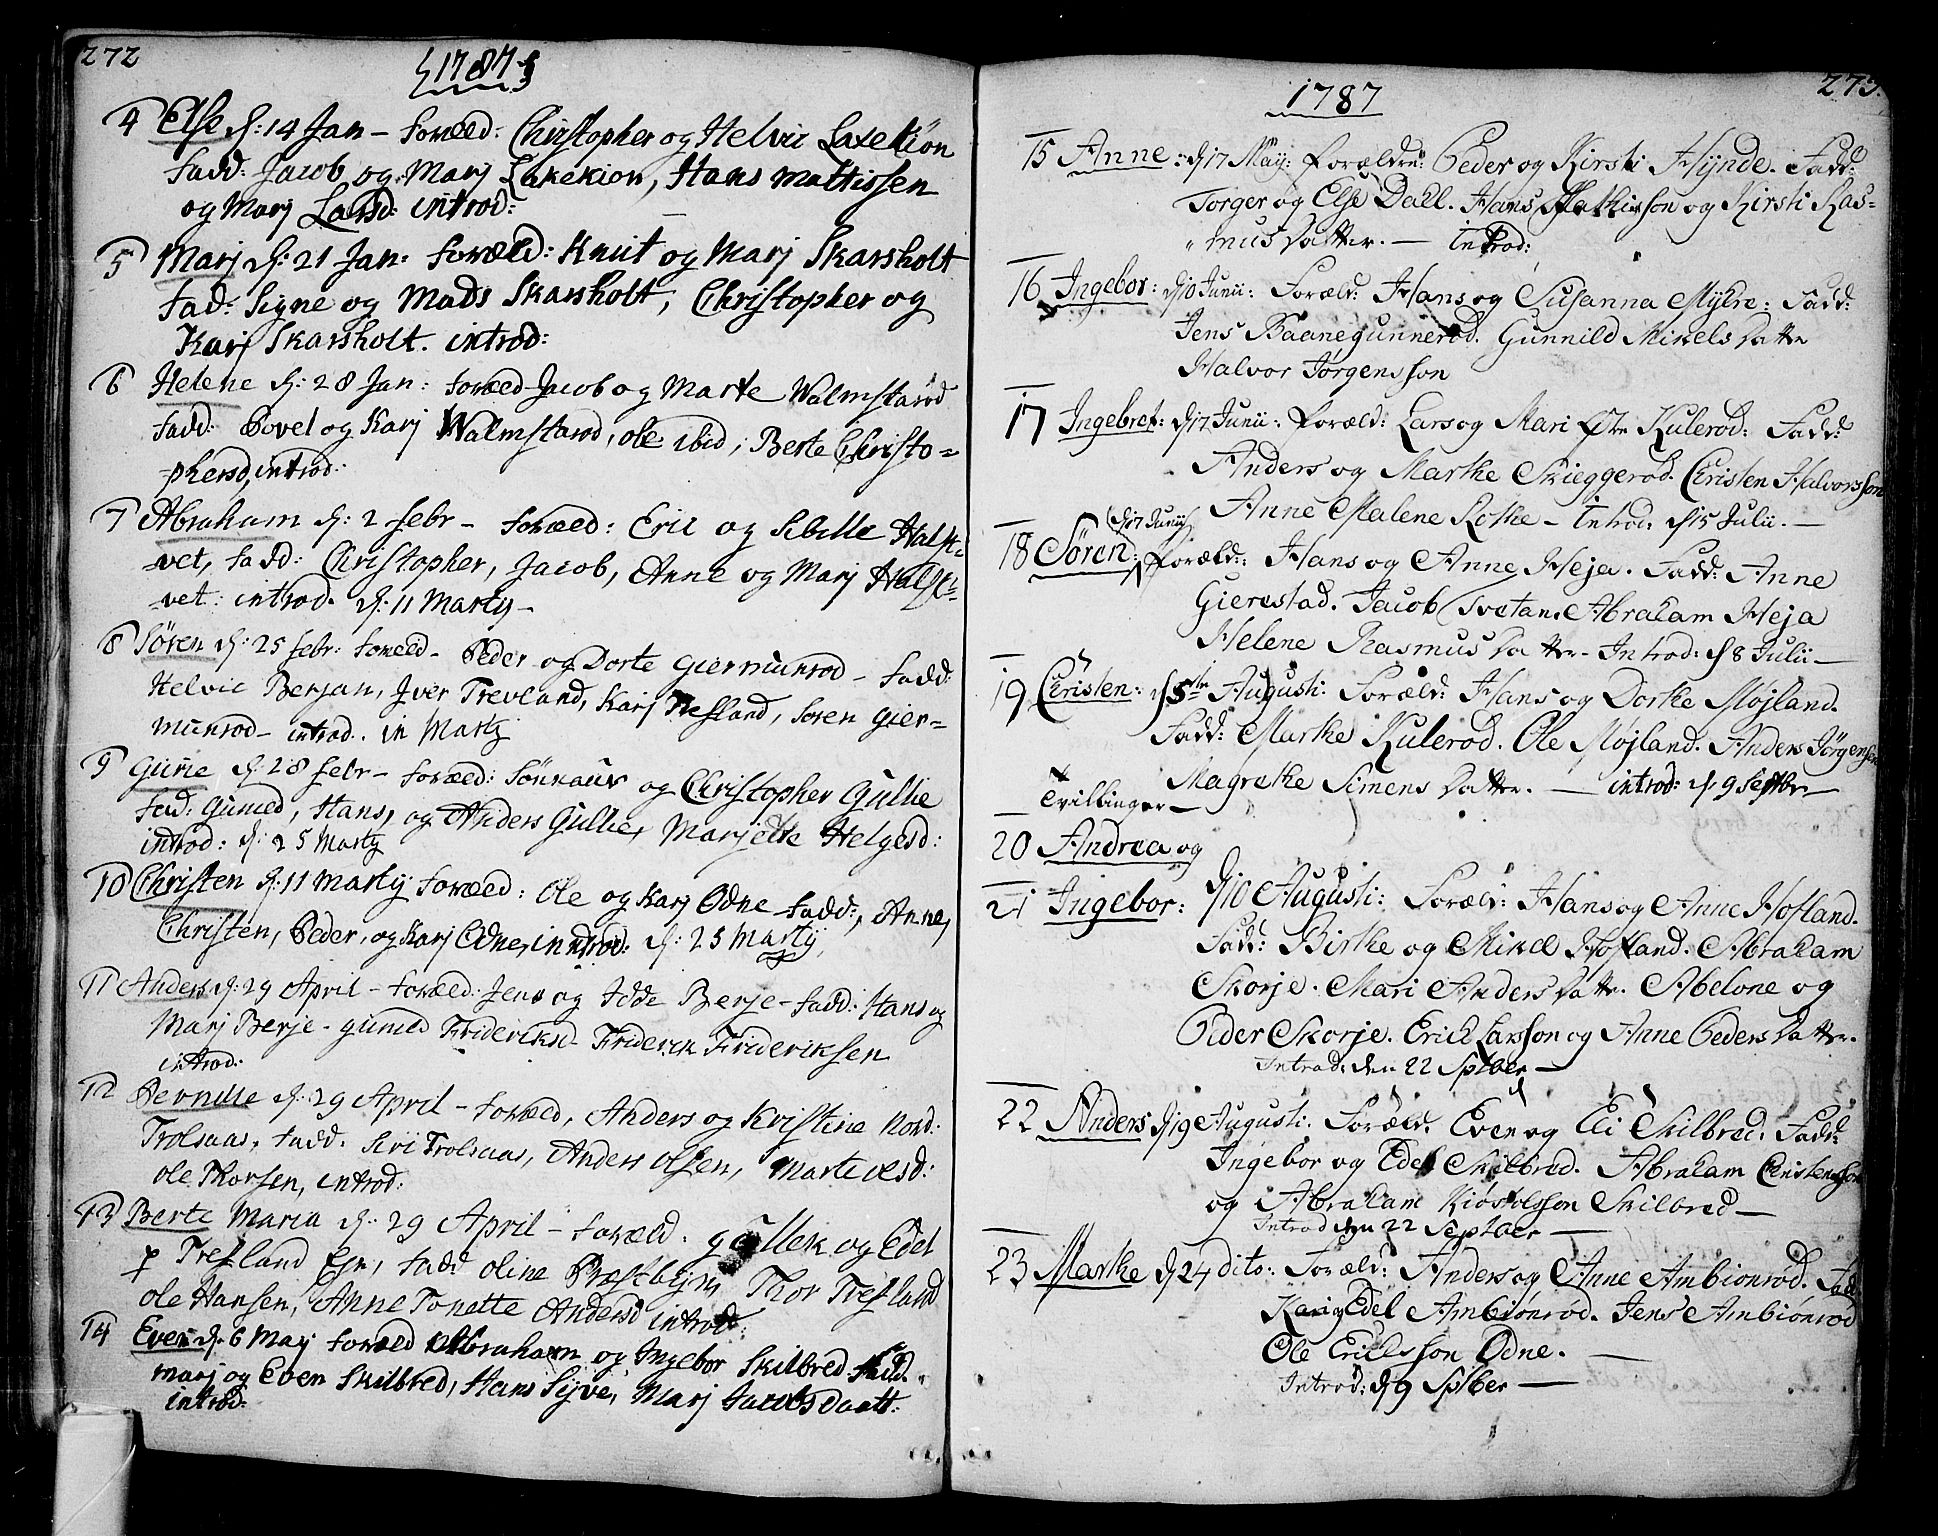 272
1787
4 Else d: 14 Jan – foræld: Christopher og Helvic Laxekiøn
fadd: Jacob og Marj Laxekion, Hans Mattissen
og Marj Larsd: introd:
5 Marj d: 21 Jan. foræld: Knut og Marj Skarsholt
fad: Signe og Mads Skarsholt, Christopher og
Karj Skarsholt. introd:
6 Helene d: 28 Jan: foræld Jacob og Marte Walmstarød
fadd: Povel og Karj Walmstarod, ole ibid, Berte Christo=
=phersd, introd:
7 Abraham d: 2 febr – foræld: Eric og Sibille Halst:
-vet, fadd: Christopher, Jacob, Anne og Marj Halst=
-vet: introd. d: 11 Martij –
8 Søren d: 25 febr: foræld – Peder og Dorte Giermunrod – fadd:
Helvic Berjan, Jver Trevland, Karj Trefland, Soren Gier-
munrod – introd. in Martij
9 Guñe d: 28 febr – foræld: Sönnauv og Christopher Gullie
fad: Guned, Hans, og Anders Gullie, Marjette Helgesd:
introd: d: 25 Martij
10 Christen d: 11 Martij foræld: Ole og Karj Odne fadd:, Anne,
Christen, Peder, og Karj Odne, introd: d: 25 Martij,
11 Anders d: 29 April – foræld: Jens og Idde Berje – fadd: Hans og
Marj Berje – Guned Frideriksd – Friderik Frideriksen
introd:
12 Pernille d: 29 April – foræld, Anders og Kristine Nord:
Trolsaas, fadd. Siri Trolsaas, Anders Olsen, Marte Olesd:
ole Thorsen, introd:
13 Berte Maria d: 29 April – foræld. Gullek og Edel
Trefland Eje, fadd oline Præstbyen, Thor Trefland
ole Hansen, Anne Tonette Andersd introd:
14 Even d. 6 Maj foræld Abraham og Ingebor Skilbred fadd.
Marj og Even Skilbred, Hans Syve, Marj Jacobsdaatt:
introd:
273.
1787
15 Anne: d 17 May: forældre: Peder og Kirsti Hynde. Fadd:
Torger og Else Dall. Hans Mathisson og Kirsti Ras=
"mus Datter. – Introd:
16 Ingebor: d 10 Junii: Foræld: Hans og Susanna Mykre: Fadd:
Jens Baanegunnerod. Gunnild Mikels Datter
Halvor Jørgensson
17 Ingebret: d 17 Junii: foræld: Lars og Mari Østr Kulerød: Fadd:
Anders og Marthe Skieggerød. Christen Halvorsson
Anne Malene Kothe – Introd: d 15 Julii. –
d 17 Junii
18 Søren: foræld: Hans og Anne Heja. Fadd: Anne
Gierestad. Jacob Tvetan. Abraham Heja
Helene Rasmus Datter – Introd: d 8 Julii –
19 Christen: d 5te Augusti: Foræld: Hans og Dorthe Møjland.
Fadd: Marthe Kulerød. Ole Møjland. Anders Jørgensen
Magrethe Simens Datter. – introd: d. 9 Septbr –
Tvillinger –
20 Andrea og
21 Ingebor: d 10 Augusti: Foræld: Hans og Anne Hofland.
Fadd: Birthe og Mikel Hofland. Abraham
Skorje. Mari Anders Datter. Abelone og
Peder Skorje. Erich Larsson og Anne Peders Datter.
Introd: den 22 Sptber –
22 Anders d 19 Augusti: Foræld: Even og Eli Skilbred. Fadd:
Ingebor og Edel Skilbred. Abraham Christensson
og Abraham Kiøstolsson Skilbred –
Introd den 22 Septber –
23 Marthe d 24 dito: Foræld: Anders og Anne Ambionrød. Fad
Kari og Edel Ambiønrod. Jens Ambiønrod
Ole Erichsson Odne. –
Introd: d 9 Sptber –